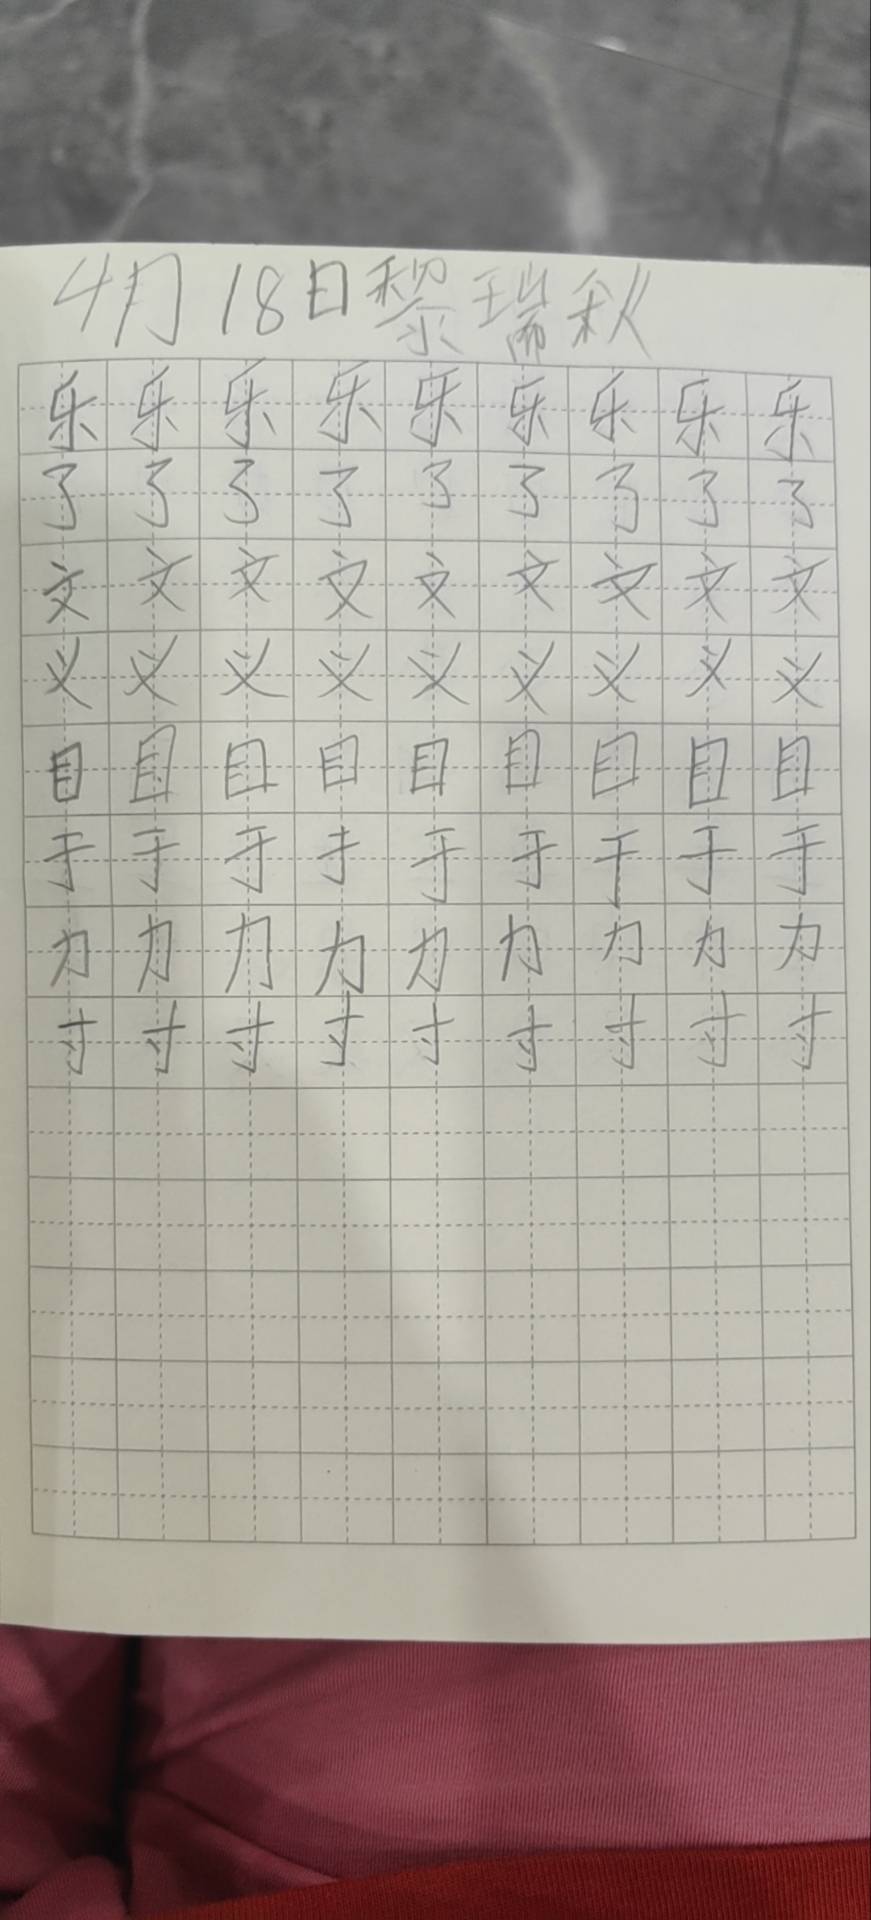 4月18日黎瑞秋
乐乐乐乐乐乐乐乐乐
了了了了了了了了了
文文文文文文文文文
义义义义义义义义义
目目目目目目目目目
于于于于于于于于于
力力力力力力力力力
寸寸寸寸寸寸寸寸寸